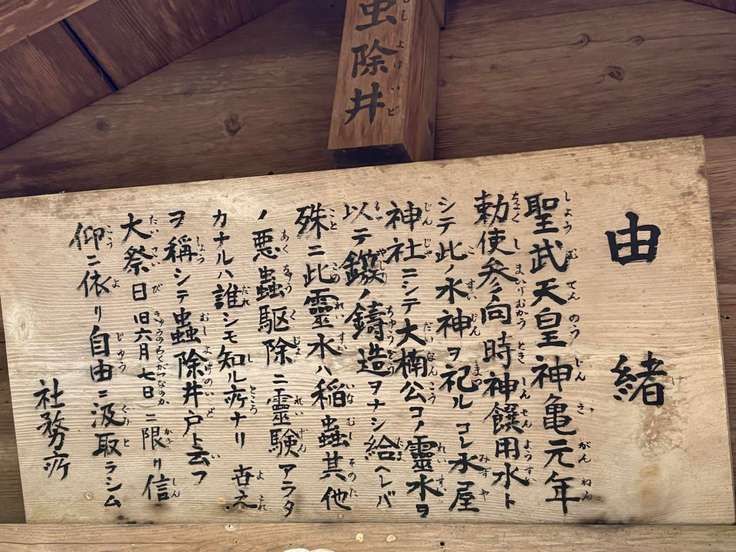 虫除井
由緒
聖武天皇神亀元年
勅使参向時神饌用水ト
シテ此ノ水神ヲ祀ルコレ水屋
神社ニシテ大楠公コノ霊水ヲ
以テ鏃ノ鋳造ヲナシ給ヘレバ
殊ニ此靈水ハ稲蟲其他
ノ悪蟲駆除ニ靈験アラタ
カナルハ誰シモ知ル所ナリ 古来
ヲ稱シテ蟲除井戸ト云フ
大祭日旧六月七日ニ限リ信
仰ニ依リ自由ニ汲取ラシム
社務所